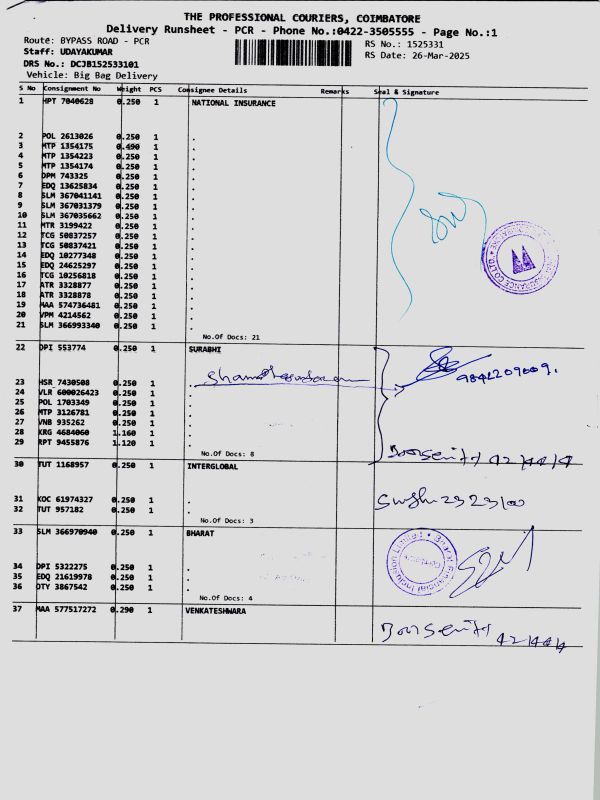 THE PROFESSIONAL COURIERS, COIMBATORE
Delivery Runsheet - PCR - Phone No.:0422-3505555 - Page No.:1
Route: BYPASS ROAD - PCR
RS No.: 1525331
Staff: UDAYAKUMAR
RS Date: 26-Mar-2025
DRS No.: DCJB152533101
Vehicle: Big Bag Delivery
S No Consignment No Weight PCS Consignee Details Remarks Seal & Signature
1 HPT 7040628 0.250 1 NATIONAL INSURANCE
2 POL 2613026 0.250 1 .
3 MTP 1354175 0.490 1 .
4 MTP 1354223 0.250 1 .
5 MTP 1354174 0.250 1 .
6 DPM 743325 0.250 1 .
7 EDQ 13625834 0.250 1 .
8 SLM 367041141 0.250 1 .
9 SLM 367031379 0.250 1 .
10 SLM 367035662 0.250 1 .
11 MTR 3199422 0.250 1 .
12 TCG 50837257 0.250 1 .
13 TCG 50837421 0.250 1 .
14 EDQ 10277348 0.250 1 .
15 EDQ 24625297 0.250 1 .
16 TCG 10256818 0.250 1 .
17 ATR 3328877 0.250 1 .
18 ATR 3328878 0.250 1 .
19 MAA 574736481 0.250 1 .
20 VPM 4214562 0.250 1 .
21 SLM 366993340 0.250 1 .
No.Of Docs: 21
22 DPI 553774 0.250 1 SURABHI
9842209009.
23 HSR 7430508 0.250 1 .
24 VLR 600026423 0.250 1 .
25 POL 1703349 0.250 1 .
26 MTP 3126781 0.250 1 .
27 VNB 935262 0.250 1 .
28 KRG 4684060 1.160 1 .
29 RPT 9455876 1.120 1 .
No.Of Docs: 8
30 TUT 1168957 0.250 1 INTERGLOBAL
31 KOC 61974327 0.250 1 .
32 TUT 957182 0.250 1 .
No.Of Docs: 3
33 SLM 366970940 0.250 1 BHARAT
Bharat Financial Inclusion Limited
34 DPI 5322275 0.250 1 .
35 EDQ 21619978 0.250 1 .
36 OTY 3867542 0.250 1 .
No.Of Docs: 4
37 MAA 577517272 0.290 1 VENKATESHWARA